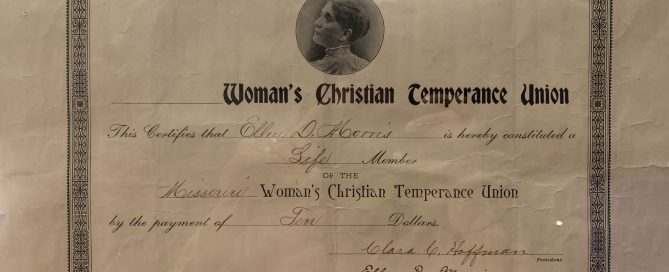 Woman's Christian Temperance Union
This Certifies that Ellen D. Morris is hereby constituted a
Life Member
OF THE
Missouri Woman's Christian Temperance Union
by the payment of Ten Dollars.
Clara C. Hoffman
President.